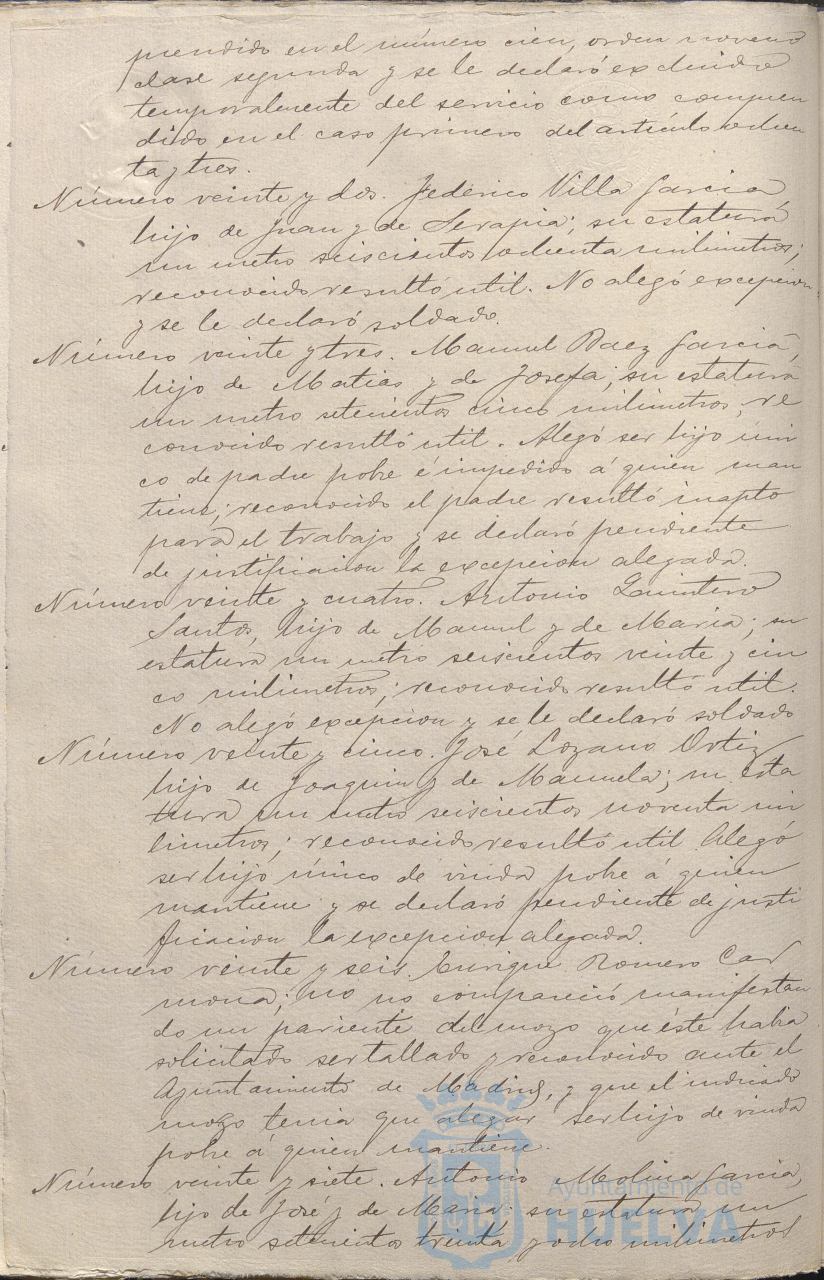 prendido en el número cien, orden noveno
clase segunda y se le declaró excluido
temporalmente del servicio como compren
dido en el caso primero del artículo ochen
ta y tres.
Número veinte y dos. Federico Villa Garcia,
hijo de Juan y de Serapia; su estatura
un metro seiscientos ochenta milimetros;
reconocido resultó util. No alegó excepcion
y se le declaró soldado.
Número veinte y tres. Manuel Baez Garcia,
hijo de Matias y de Josefa; su estatura
un metro setecientos cinco milimetros, re
conocido resultó util. Alegó ser hijo úni
co de padre pobre é impedido á quien man
tiene; reconocido el padre resultó inapto
para el trabajo y se declaró pendiente
de justificacion la excepcion alegada.
Número veinte y cuatro. Antonio Quintero
Santos, hijo de Manuel y de Maria; su
estatura un metro seiscientos veinte y cin
co milimetros; reconocido resultó util.
No alegó excepcion y se le declaró soldado
Número veinte y cinco. José Lozano Ortiz
hijo de Joaquin y de Manuela; su esta
tura un metro seiscientos noventa mi
limetros; reconocido resultó util. Alegó
ser hijo único de viuda pobre á quien
mantiene y se declaró pendiente de justi
ficacion la excepcion alegada.
Número veinte y seis. Enrique Romero Car
mona; no no compareció manifestan
do un pariente del mozo que éste habia
solicitado ser tallado y reconocido ante el
Ayuntamiento de Madrid, y que el indicado
mozo tenia que alegar ser hijo de viuda
pobre á quien mantiene.
Número veinte y siete. Antonio Molina Garcia,
hijo de José y de Maria: su estatura un
metro setecientos treinta y ocho milimetros
Ayuntamiento de
HUELVA